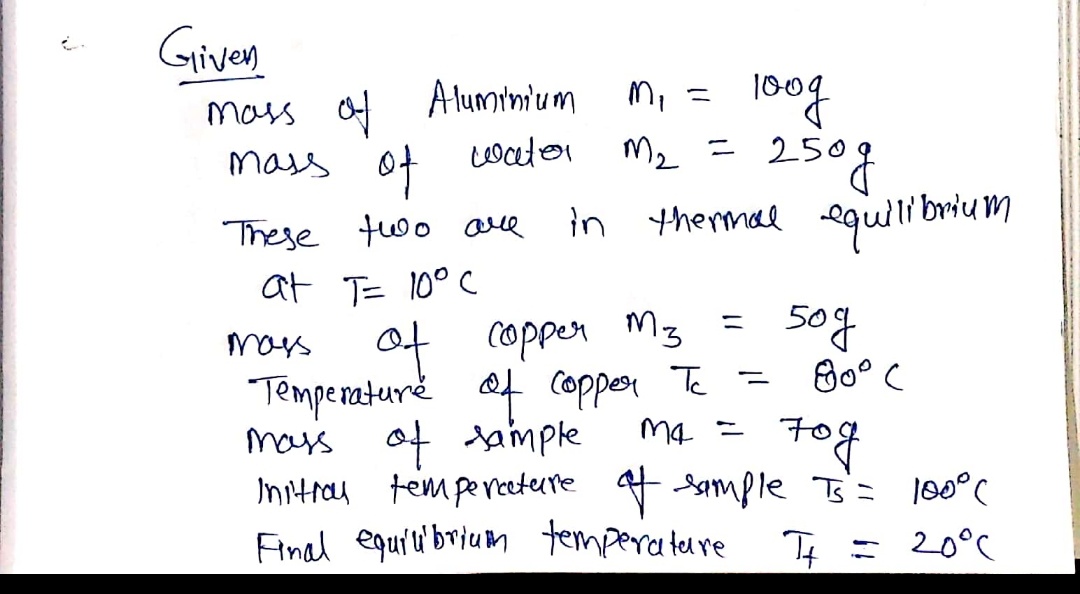 Given
mass of Aluminium m₁ = 100g
mass of water m₂ = 250g
These two are in thermal equilibrium
at T= 10° C
mass of copper m₃ = 50g
Temperature of copper Tc = 80° C
mass of sample m4 = 70g
Initial temperature of sample Ts = 100°C
Final equilibrium temperature Tf = 20°C